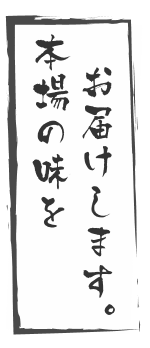 本場の味を
お届けします。